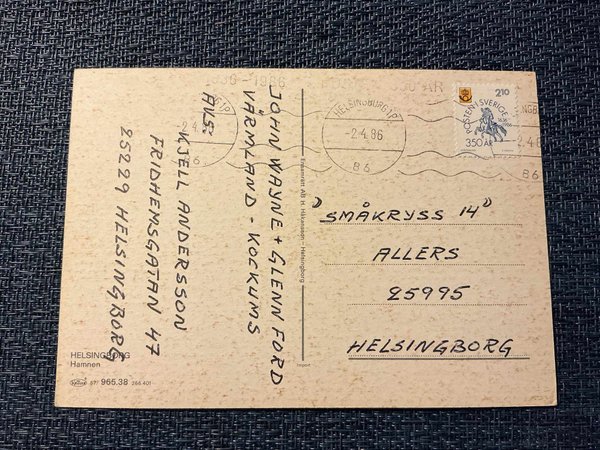 JOHN WAYNE + GLENN FORD
VÄRMLAND - KOCKUMS
AVS:
KJELL ANDERSSON
FRIDHEMSGATAN 47
25229 HELSINGBORG
HELSINGBORG
Hamnen
965.38 266.401
Ensamrätt AB H. Håkansson - Helsingborg
Import
1636-1986
HELSINGBORG 1P
-2.4.86
86
210
POSTEN I SVERIGE
350 ÅR
"SMÅKRYSS 14"
ALLERS
25995
HELSINGBORG